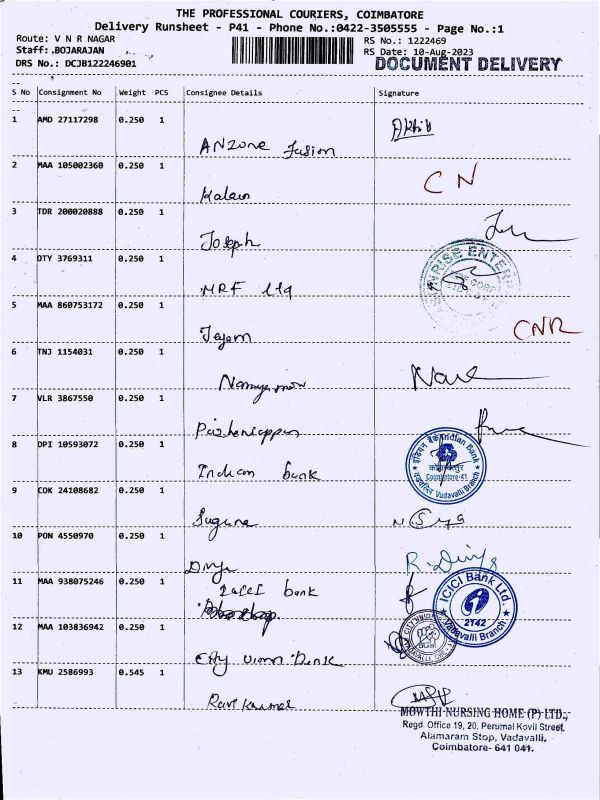 THE PROFESSIONAL COURIERS, COIMBATORE
Delivery Runsheet - P41 - Phone No.:0422-3505555 - Page No.:1
Route: V N R NAGAR
RS No.: 1222469
Staff: BOJARAJAN
RS Date: 10-Aug-2023
DRS No.: DCJB122246901
DOCUMENT DELIVERY
S No Consignment No Weight PCS Consignee Details Signature
1 AMD 27117298 0.250 1
ANZone Fusion
2 MAA 105002360 0.250 1
CN
Kalam
3 TDR 200020888 0.250 1
Joseph
4 OTY 3769311 0.250 1
SUNRISE ENTER
MRF Ltd
5 MAA 860753172 0.250 1
CNR
Jeyam
6 TNJ 1154031 0.250 1
7 VLR 3867550 0.250 1
8 DPI 10593072 0.250 1
इंडियन बैंक Indian Bank
Coimbatore-41
Vadavalli Branch
Indian bank
9 COK 24108682 0.250 1
Suguna
10 PON 4550970 0.250 1
R. Divya
Divya
11 MAA 938075246 0.250 1
ICICI bank
ICICI Bank Ltd.
2142
Vadavalli Branch
12 MAA 103836942 0.250 1
City Union Bank
13 KMU 2586993 0.545 1
Ravi Kumar
MOWTHI NURSING HOME (P) LTD.,
Regd. Office 19, 20, Perumal Kovil Street,
Alamaram Stop, Vadavalli,
Coimbatore- 641 041.